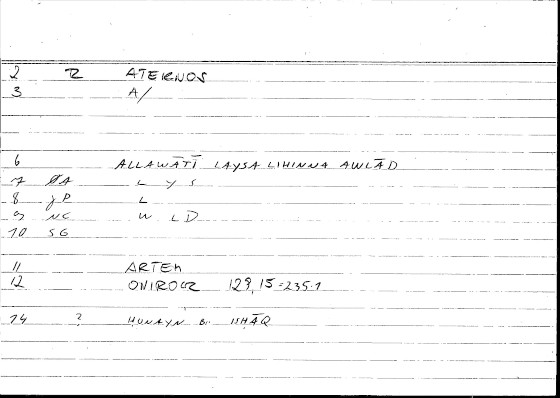 2 ATEKNOS
3 A/
6 ALLAWĀTĪ LAYSA LIHINNA AWLĀD
7 ØA L Y S
8 JP L
9 NC W L D
10 SG
11 ARTEM
12 ONIROCR 129, 15=235.1
14 ? HUNAYN B. ISHĀQ